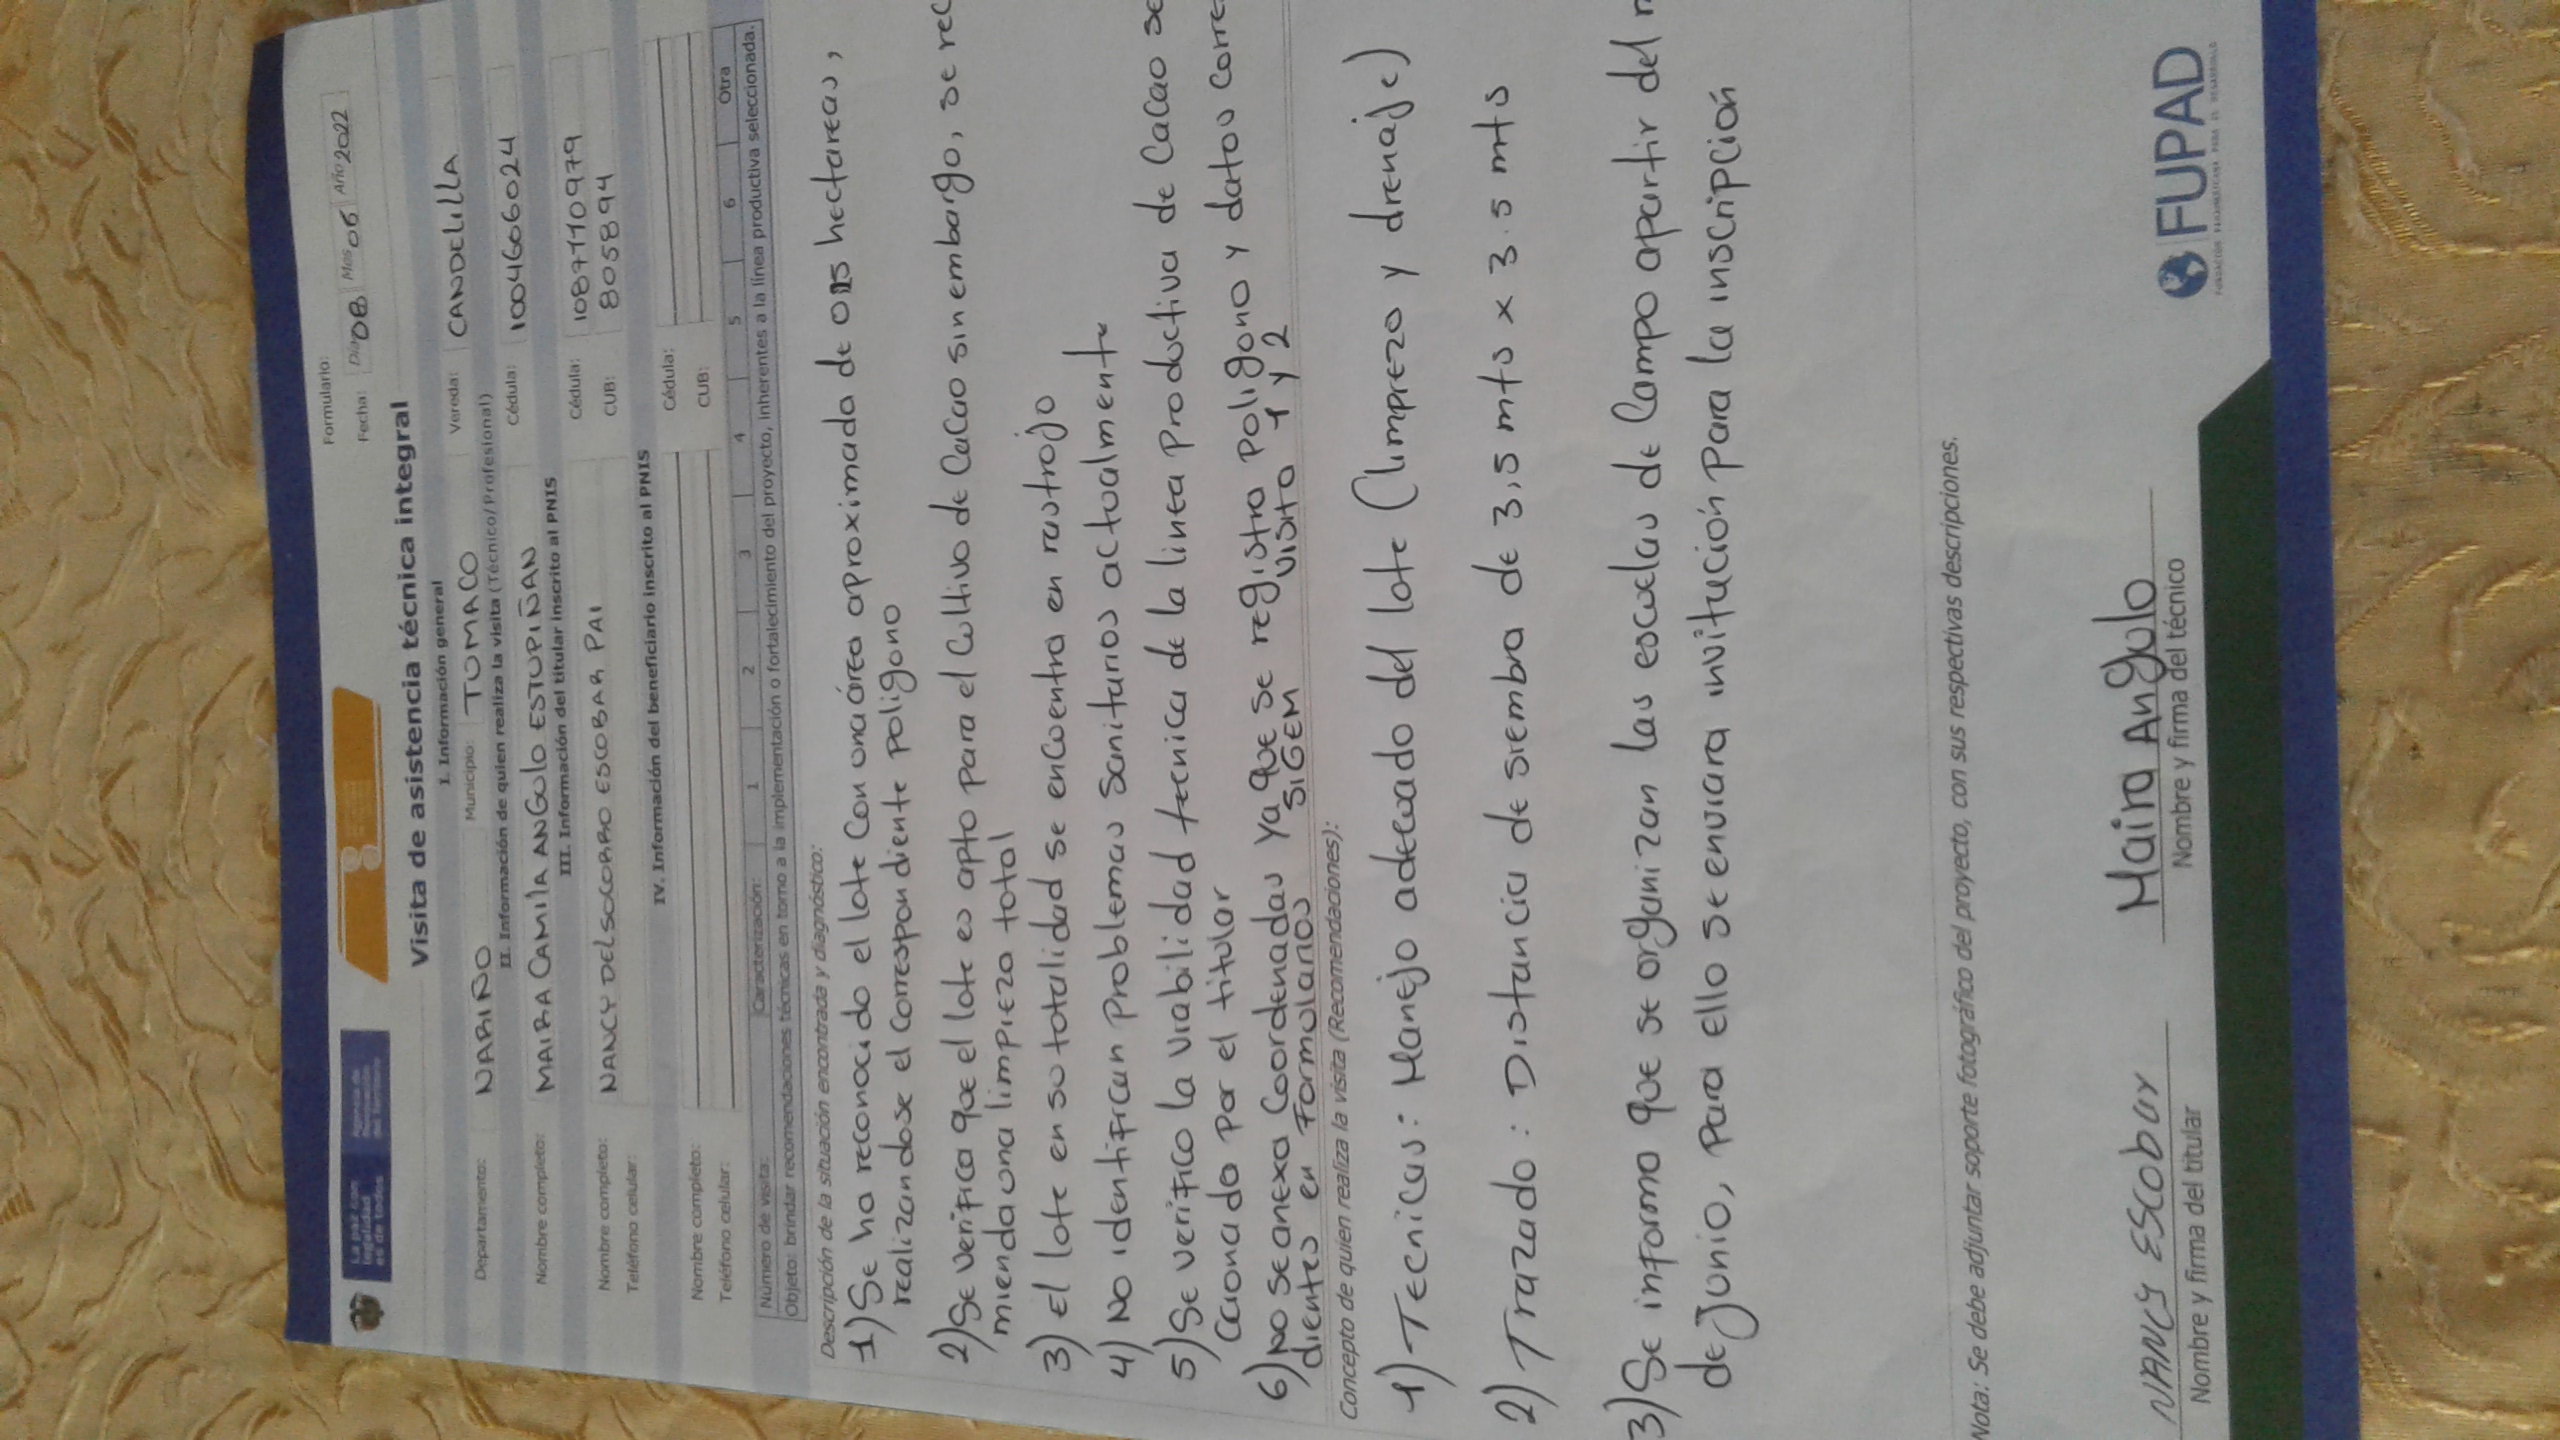 La paz con
legalidad
es de todos
Formulario:
Fecha: Día 08 Mes 06 Año 2022
Visita de asistencia técnica integral
I. Información general
Departamento: NARIÑO Municipio: TUMACO Vereda: CANDELILLA
II. Información de quien realiza la visita (Técnico/Profesional)
Nombre completo: MAIRA CAMILA ANGULO ESTUPIÑAN Cédula: 1004606024
III. Información del titular inscrito al PNIS
Nombre completo: NANCY DEL SOCORRO ESCOBAR PAI Cédula: 1087110979
Teléfono celular: CUB: 805894
IV. Información del beneficiario inscrito al PNIS
Nombre completo: Cédula:
Teléfono celular: CUB:
Número de visita: Caracterización: 1 2 3 4 5 6 Otra
Objeto: brindar recomendaciones técnicas en torno a la implementación o fortalecimiento del proyecto, inherentes a la línea productiva seleccionada.
Descripción de la situación encontrada y diagnóstico:
1) Se ha reconocido el lote con una área aproximada de hectareas,
realizandose el correspondiente poligono
2) Se verifica que el lote es apto para el cultivo de cacao sin embargo, se rec
mienda una limpieza total
3) El lote en su totalidad se encuentra en rastrojo
4) No identifican problemas sanitarios actualmente
5) Se verifico la viabilidad tecnica de la linea productiva de cacao se
ccionado por el titular
6) No se anexa coordenadas ya que se registra poligono y datos corre
dientes en formularios SIGEM visita 1 y 2
Concepto de quien realiza la visita (Recomendaciones):
1) Tecnicas: Manejo adecuado del lote (limpieza y drenaje)
2) Trazado: Distancia de siembra de 3,5 mts x 3.5 mts
3) Se informa que se organizan las escuelas de campo apartir del
de junio, para ello se enviara invitación para la inscripción
Nota: Se debe adjuntar soporte fotográfico del proyecto, con sus respectivas descripciones.
NANCY ESCOBAR Maira Angulo
Nombre y firma del titular Nombre y firma del técnico
FUPAD
FUNDACIÓN PANAMERICANA PARA EL DESARROLLO